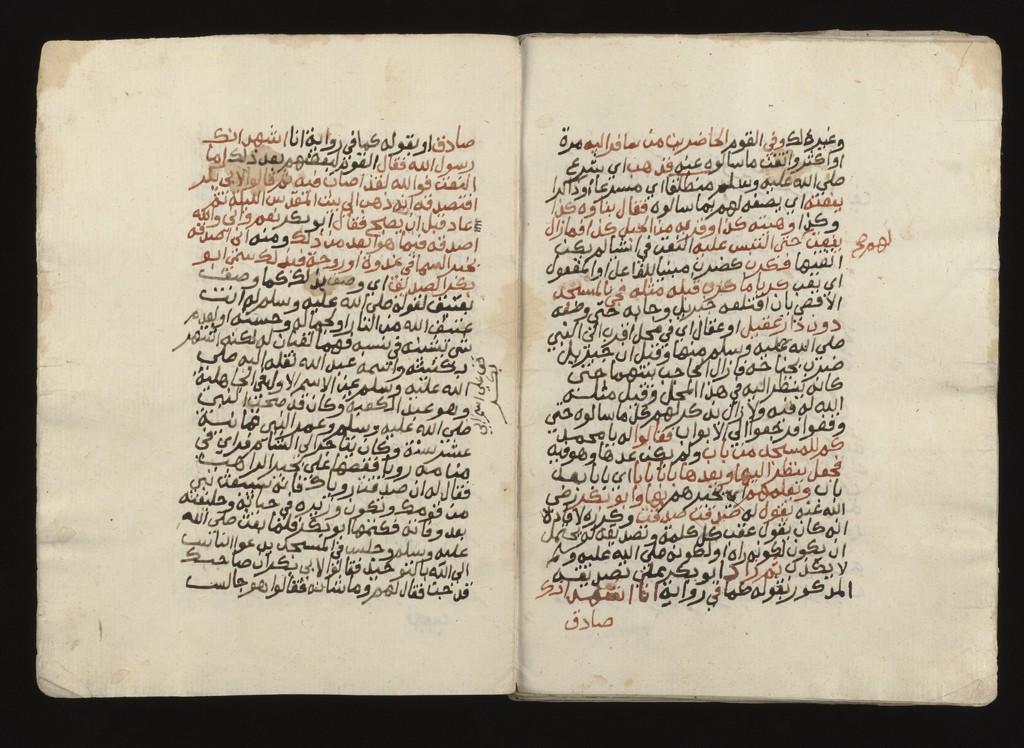 وغيره لك وفي القوم الحاضرين من سافر اليه مرة
او اكثر وانعت ما سالوه عنه فذهب اي شرع
صلي الله عليه وسلم منطلقا اي مسرعا او ذاكرا
ينعته اي يصفه لهم بما سالوه فقال بناوه كذا
وكذا وهيئته كذا وقربه من الجبل كذا فما زال
ينعت حتي التبس عليه النعت في انشا لم يكن
لهم صح
اتقنها فكرب كضرب مبنيا للفاعل او المفعول
اي تعب كربا ما كرب قبله مثله فجي بالمسجد
الاقصي بان اقتلعه جبريل وجابه حتي وضعه
دون دار عقيل او عقال اي في محل اقرب الي النبي
صلي الله عليه وسلم منها وقيل ان جبريل
ضرب بجناحه فازال الحاجب بينهما حتي
كانه ينظر اليه في هذا المحل وقيل مثله
الله له فيه ولا زال يذكر لهم كل ما سالوه حتي
وقفوا فرجعوا الي الابواب فقالوا له يا محمد
كم للمسجد من باب ولم يكن عدها وهو فيه
فجعل ينظر اليها ويعدها بابا بابا اي بابا بعد
باب ويعلمهم اي يخبرهم بها وابو بكر رضي
الله عنه يقول له صدقت صدقت وكرره لافادة
انه كان يقول عقب كل كلمة وتصديقه له يحتمل
ان يكون لكونه راه او لكونه صلي الله عليه وسلم
لا يكذب ثم زاد ابو بكر علي تصديقه
المذكور بقوله كما في رواية انا اشهد انك
صادق
صادق او بقوله كما في رواية انا اشهد انك
رسول الله فقال القوم لبعضهم بعد ذلك اما
النعت فوالله لقد اصاب فيه ثم قالوا لابي بكر
افتصدقه انه ذهب الي بيت المقدس الليلة ثم
عاد قبل ان يصبح فقال ابو بكر نعم واني والله
اصدقه فيما هو ابعد من ذلك ومنه اني اصدقه
بخبر السما في غدوة او روحة فبذلك سمي ابو
بكر الصديق اي وصف بذلك كما وصف
بعتيق لقوله صلي الله عليه وسلم له انت
عتيق الله من النار او لجماله وحسنه او لعدم
شي يشينه في نسبه فهما لقبان له لكنه اشتهر
بكنيته واسمه عبد الله نقله اليه صلي
الله عليه وسلم عن الاسم الاول في الجاهلية
وهو عبد الكعبة وكان قد صحب النبي
صلي الله عليه وسلم وعمر النبي ثمانية
عشر سنة وكان بتاجرا الي الشام فراي في
منامه رويا فقصها علي بحيرا الراهب
فقال له ان صدقت روياك فانه سيبعث نبي
من قومك وتكون وزيره في حياته وخليفته
بعد وفاته فكتمها ابو بكر فلما بعث صلي الله
عليه وسلم وجلس في المسجد يدعوا الناس
الي الله بالتوحيد فقالوا لابي بكر ان صاحبك
قد جن فقال لهم وما شانه فقالوا هو جالس